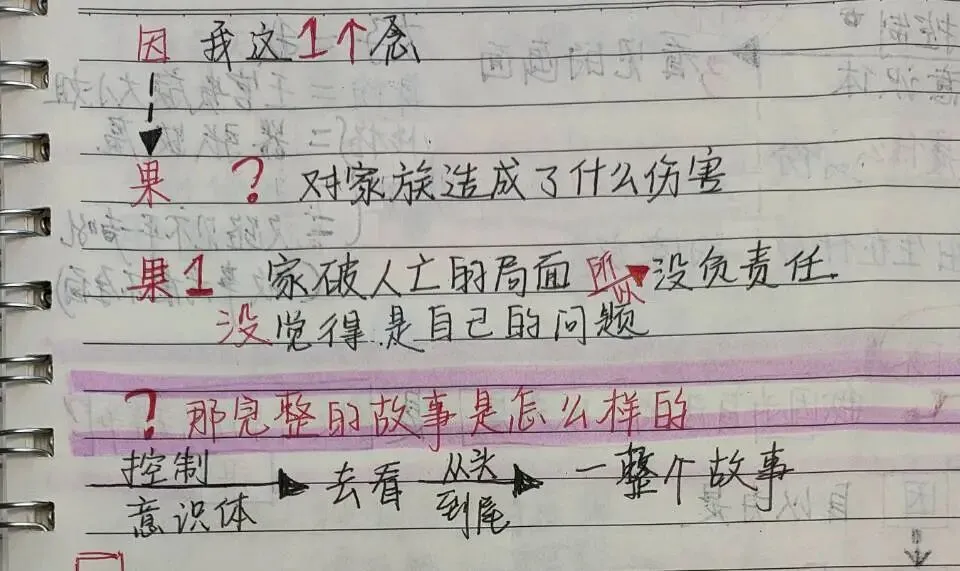 因 我这1个念
果 ? 对家族造成了什么伤害
果1 家破人亡的局面 所以 没负责任.
没觉得是自己的问题
? 那完整的故事是怎么样的
控制 意识体 去看 从头到尾 一整个故事